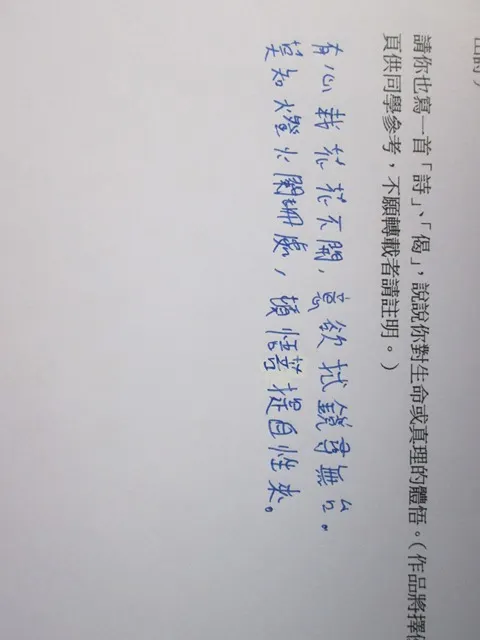 請你也寫一首「詩」、「偈」，說說你對生命或真理的體悟。（作品將擇
頁供同學參考，不願轉載者請註明。）
有心栽花花不開，意欲拭鏡尋無台。
莫知燈火闌珊處，頓悟菩提自性來。